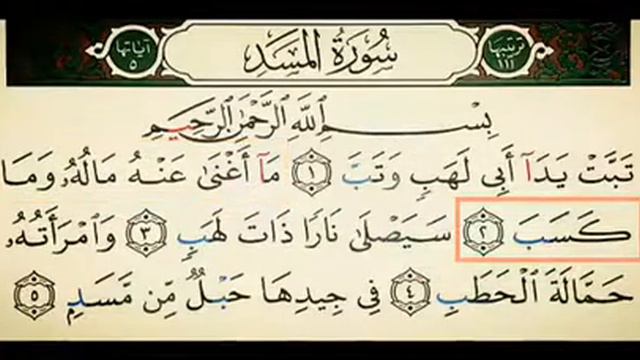 ترتيبها ١١١
سُورَةُ المَسَدِ
آياتها ٥
بِسْمِ ٱللَّهِ ٱلرَّحْمَٰنِ ٱلرَّحِيمِ
تَبَّتْ يَدَآ أَبِي لَهَبٍ وَتَبَّ ١ مَآ أَغْنَىٰ عَنْهُ مَالُهُۥ وَمَا
كَسَبَ ٢ سَيَصْلَىٰ نَارًا ذَاتَ لَهَبٍ ٣ وَٱمْرَأَتُهُۥ
حَمَّالَةَ ٱلْحَطَبِ ٤ فِي جِيدِهَا حَبْلٌ مِّن مَّسَدٍ ٥